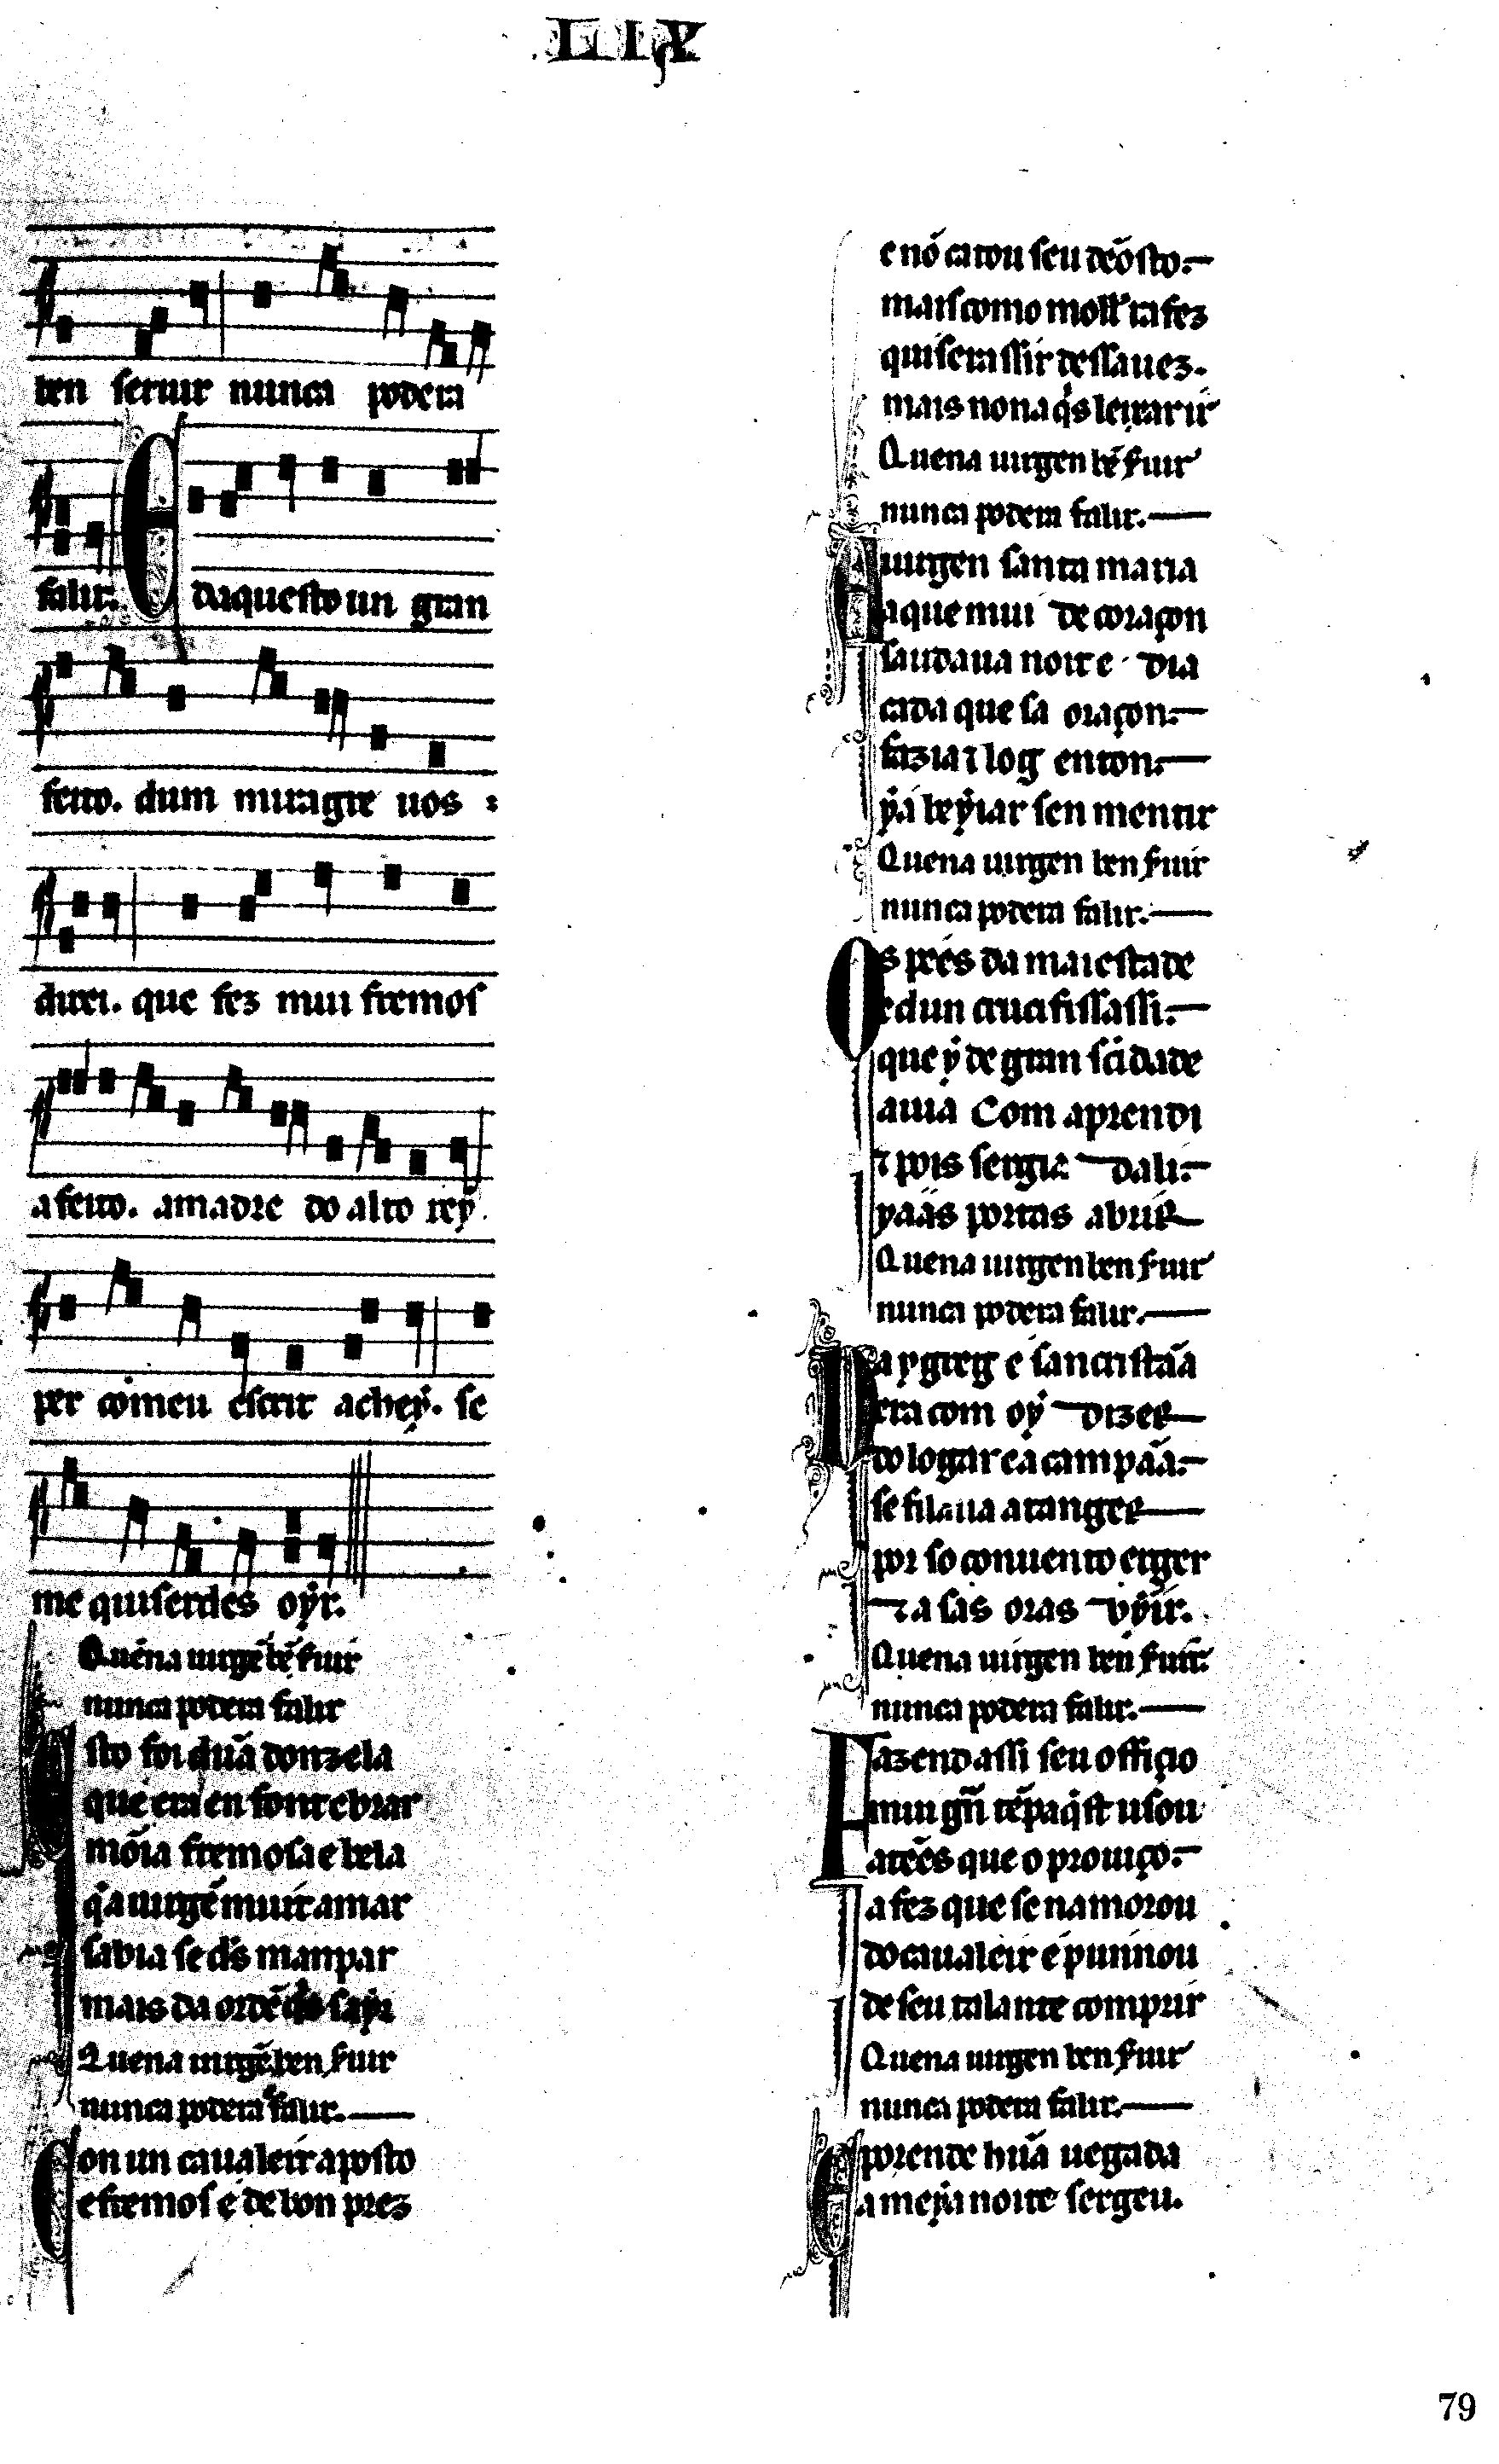 LIX
ben seruir nunca podera
falir. E daquesto un gran
feito. dum miragre uos
direi. que fez mui fremos
a feito. a madre do alto reẏ.
per com eu escrit acheẏ. se
me quiserdes oẏr.
Quena uirgẽ bẽ ſuir
nunca podera falir
Esto foi dũa donzela
que era en fontebrar
mõia fremosa e bela
q̃ a uirgẽ muit amar
sabia se ds̃ manpar
mais da ordẽ sayr
Quena uirgẽ ben ſuir
nunca podera falir.
Con un caualeir aposto
e fremos e de bon prez
e nõ catou seu deõsto.
mais como moll̃r rafez
quisera ssir dessa uez.
mais nona q̃s leixar ir
Quena uirgen bẽ ſuir
nunca podera falir.
A uirgen santa maria
a que mui de coraçon
saudaua noite dia
cada que sa oraçon.
fazia ⁊ log enton.
ẏa beẏiar sen mentir
Quena uirgen ben ſuir
nunca podera falir.
Os pees da maiestade
e dun crucifiss assi.
que ẏ de gran sc̃idade
auia com aprendi
⁊ pois sergia dali.
yaas portas abrir
Quena uirgen ben ſuir
nunca podera falir.
Da ygreg e sancristãa
era com oẏ dizer
do logar e a campãa.
se filaua a tanger
por so conuento erger
⁊ a sas oras vẏir.
Quena uirgen ben ſuir
nunca podera falir.
Fazend assi seu offiçio
mui gñ tẽp a q̃st usou
atẽes que o prouiço.
a fez que se namorou
do caualeir e punnou
de seu talante comprir
Quena uirgen ben ſuir
nunca podera falir.
E porende hũa uegada
a meẏa noite sergeu.
79